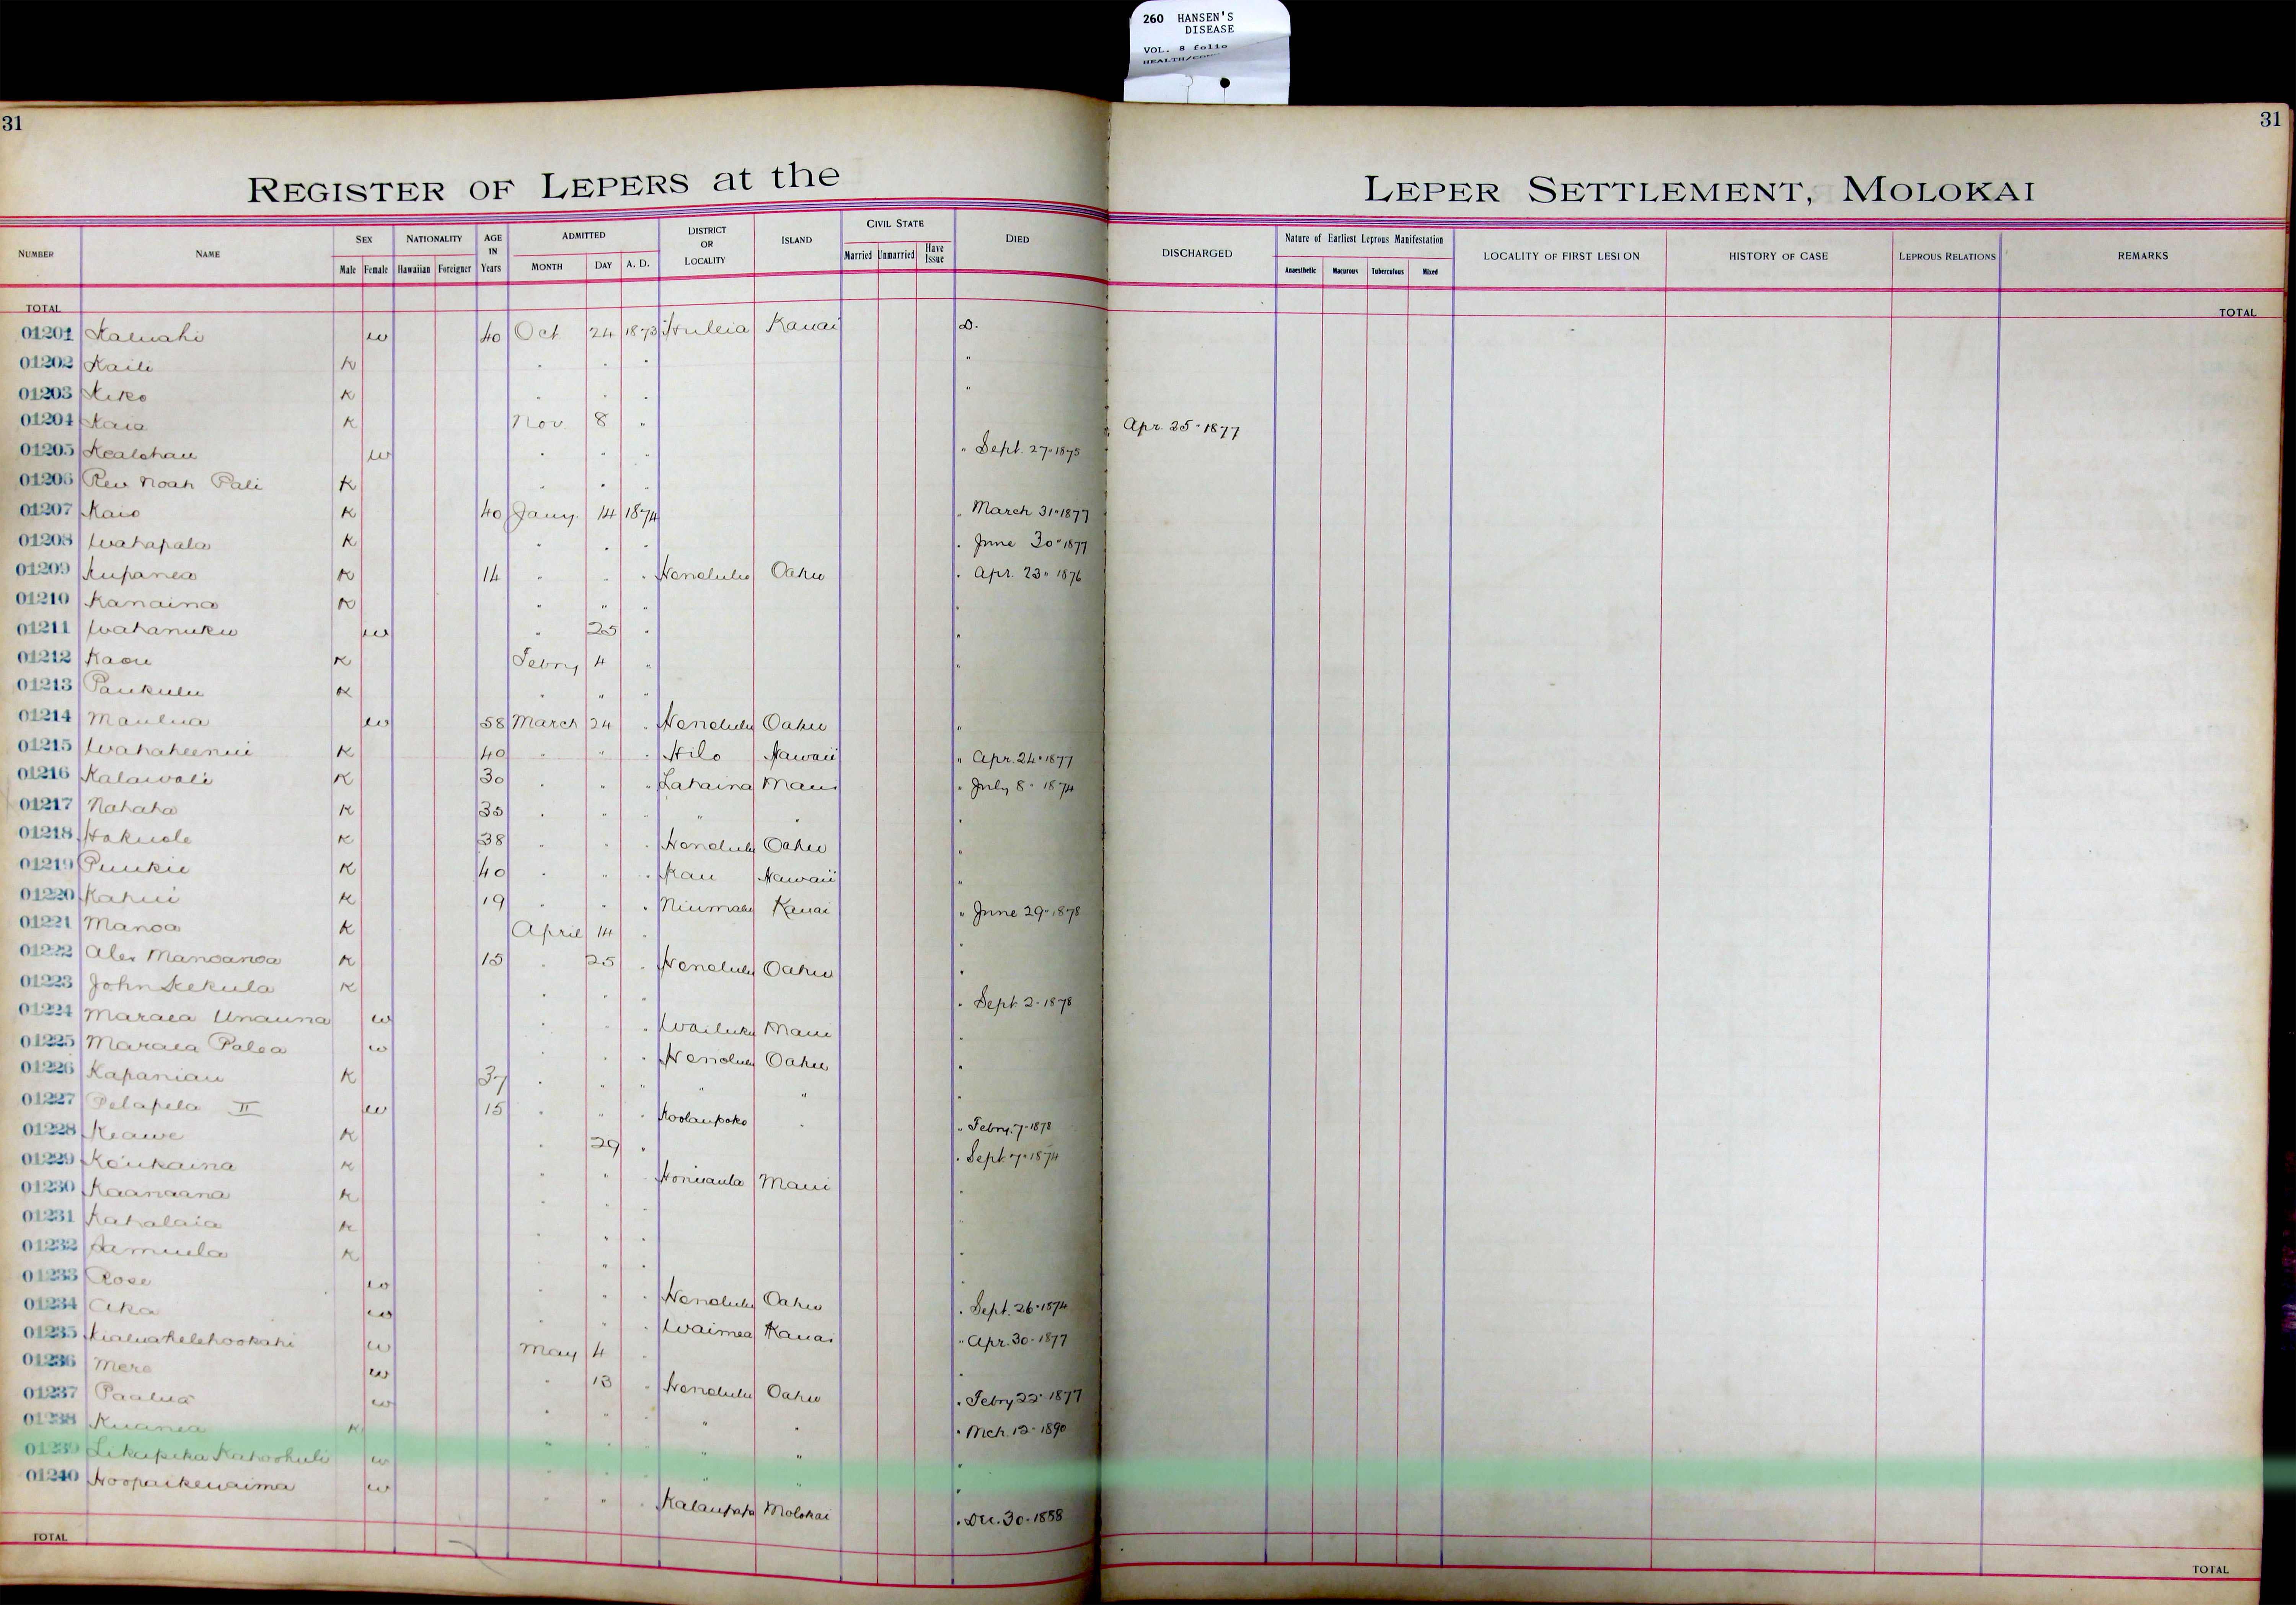 260 HANSEN'S
DISEASE
VOL. 8 folio
31 31
REGISTER OF LEPERS at the LEPER SETTLEMENT, MOLOKAI
NUMBER NAME SEX NATIONALITY AGE IN Years ADMITTED DISTRICT OR LOCALITY ISLAND CIVIL STATE DIED DISCHARGED Nature of Earliest Leprous Manifestation LOCALITY OF FIRST LESION HISTORY OF CASE LEPROUS RELATIONS REMARKS
Male Female Hawaiian Foreigner MONTH DAY A. D. Married Unmarried Have Issue Anaesthetic Macurous Tuberculous Mixed
TOTAL TOTAL
01201 Kaluahi w 40 Oct 24 1873 Huleia Kauai D.
01202 Kaili K " " " "
01203 Keko K " " " "
01204 Kaia K Nov 8 " Apr. 25" 1877
01205 Kealohau w " " " " Sept. 27" 1875
01206 Rev Noah Pali K " " "
01207 Kaio K 40 Jany. 14 1874 " March 31" 1877
01208 Wahapala K " " " " June 30" 1877
01209 Kupanea K 14 " " " Honolulu Oahu " Apr. 23" 1876
01210 Kanaina K " " " "
01211 Wahanuku w " 25 " "
01212 Kaou K Febry 4 " "
01213 Paukulu K " " "
01214 Maulua w 58 March 24 " Honolulu Oahu "
01215 Wahaheenui K 40 " " " Hilo Hawaii " Apr. 24" 1877
01216 Kalawali K 30 " " " Lahaina Maui " July 8" 1874
01217 Nahaha K 35 " " " " " "
01218 Hokuole K 38 " " " Honolulu Oahu "
01219 Puukii K 40 " " " Kau Hawaii "
01220 Kahui K 19 " " " Niumalu Kauai " June 29" 1878
01221 Manoa K April 14 " "
01222 Alex Manoanoa K 15 " 25 " Honolulu Oahu "
01223 John Kekula K " " " " Sept. 2" 1878
01224 Maraea Unauna w " " " Wailuku Maui "
01225 Maraea Palea w " " " Honolulu Oahu "
01226 Kapaniau K 37 " " " " " "
01227 Pelapela II w 15 " " " Koolaupoko " " Febry. 7" 1878
01228 Keawe K " 29 " " Sept. 7" 1874
01229 Koukaina K " " " Honuaula Maui "
01230 Kaanaana K " " "
01231 Kahalaia K " " " "
01232 Samuela K " " "
01233 Rose w " " " Honolulu Oahu " Sept. 26" 1874
01234 Aka w " " " Waimea Kauai " Apr. 30" 1877
01235 w May 4 " "
01236 Mere w " 13 " Honolulu Oahu " Febry 22" 1877
01237 Paalua w " " " " " " Mch. 12" 1890
01238 Kuanea K " " " " " "
01239 Likapeka Kahoohuli w " " " " " "
01240 Hoopaikewaima w " " " Kalaupapa Molokai " Dec. 30" 1888
TOTAL TOTAL